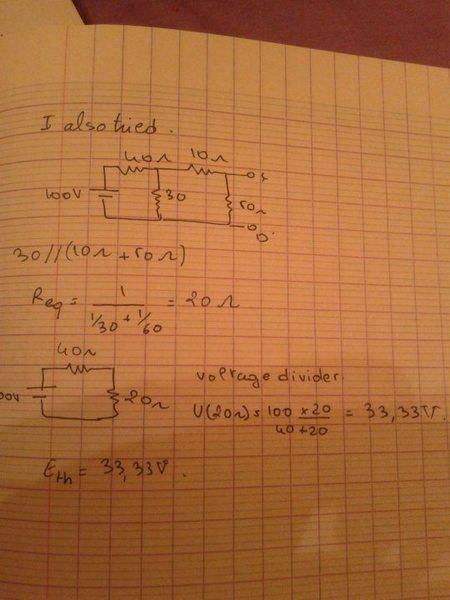 I also tried.
40Ω 10Ω
100V 30 50Ω
30//(10Ω + 50Ω)
Req = 1 / (1/30 + 1/60) = 20Ω
40Ω
00V 20Ω
voltage divider.
U(20Ω) = 100 x 20 / 40+20 = 33,33V.
Eth = 33,33V.